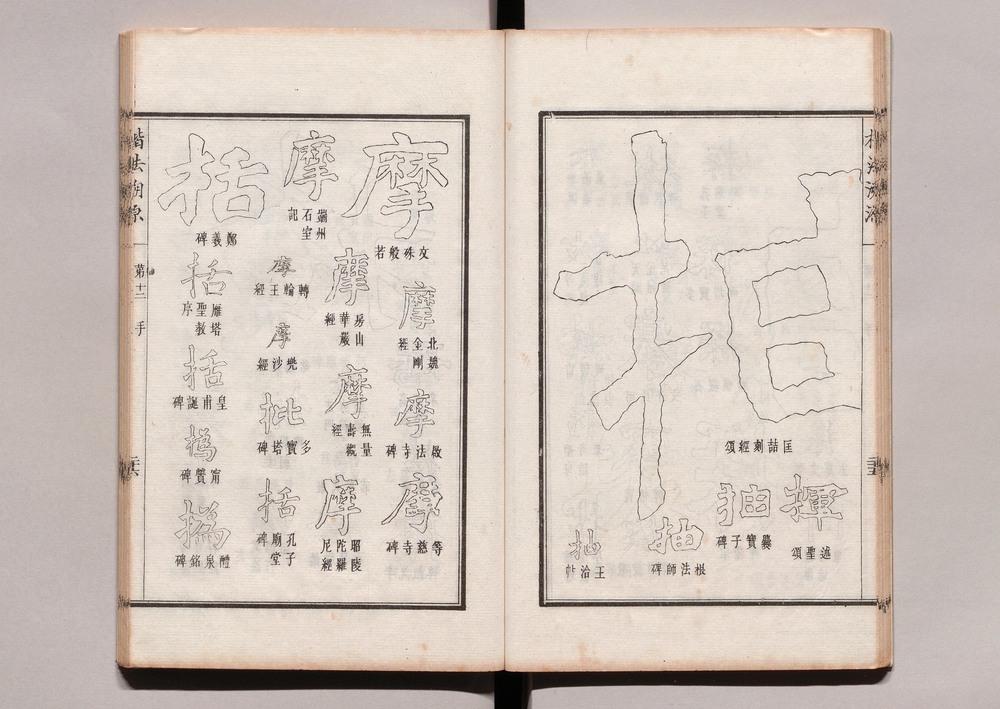 楷法溯源
匡喆刻經頌
揮
述聖頌
抽
爨寶子碑
抽
根法師碑
抽
王洽帖
摩
文殊般若
摩
北魏
金剛
經
摩
啟法寺碑
摩
等慈寺碑
摩
端州
石室
記
摩
房山
華嚴
經
摩
無量
壽觀
經
摩
昭陵
陀羅
尼經
摩
轉輪王經
摩
兜沙經
批
多寶塔碑
括
孔子
廟堂
碑
括
鄭羲碑
括
雁塔
聖教
序
括
皇甫誕碑
撝
甯贙碑
撝
醴泉銘碑
楷法溯源
第十二
手